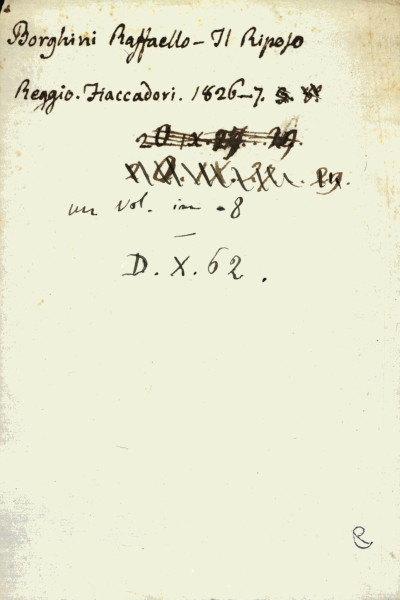 Borghini Raffaello - Il Riposo
Reggio. Fiaccadori. 1826-7.
un vol. in -8
D. X. 62.